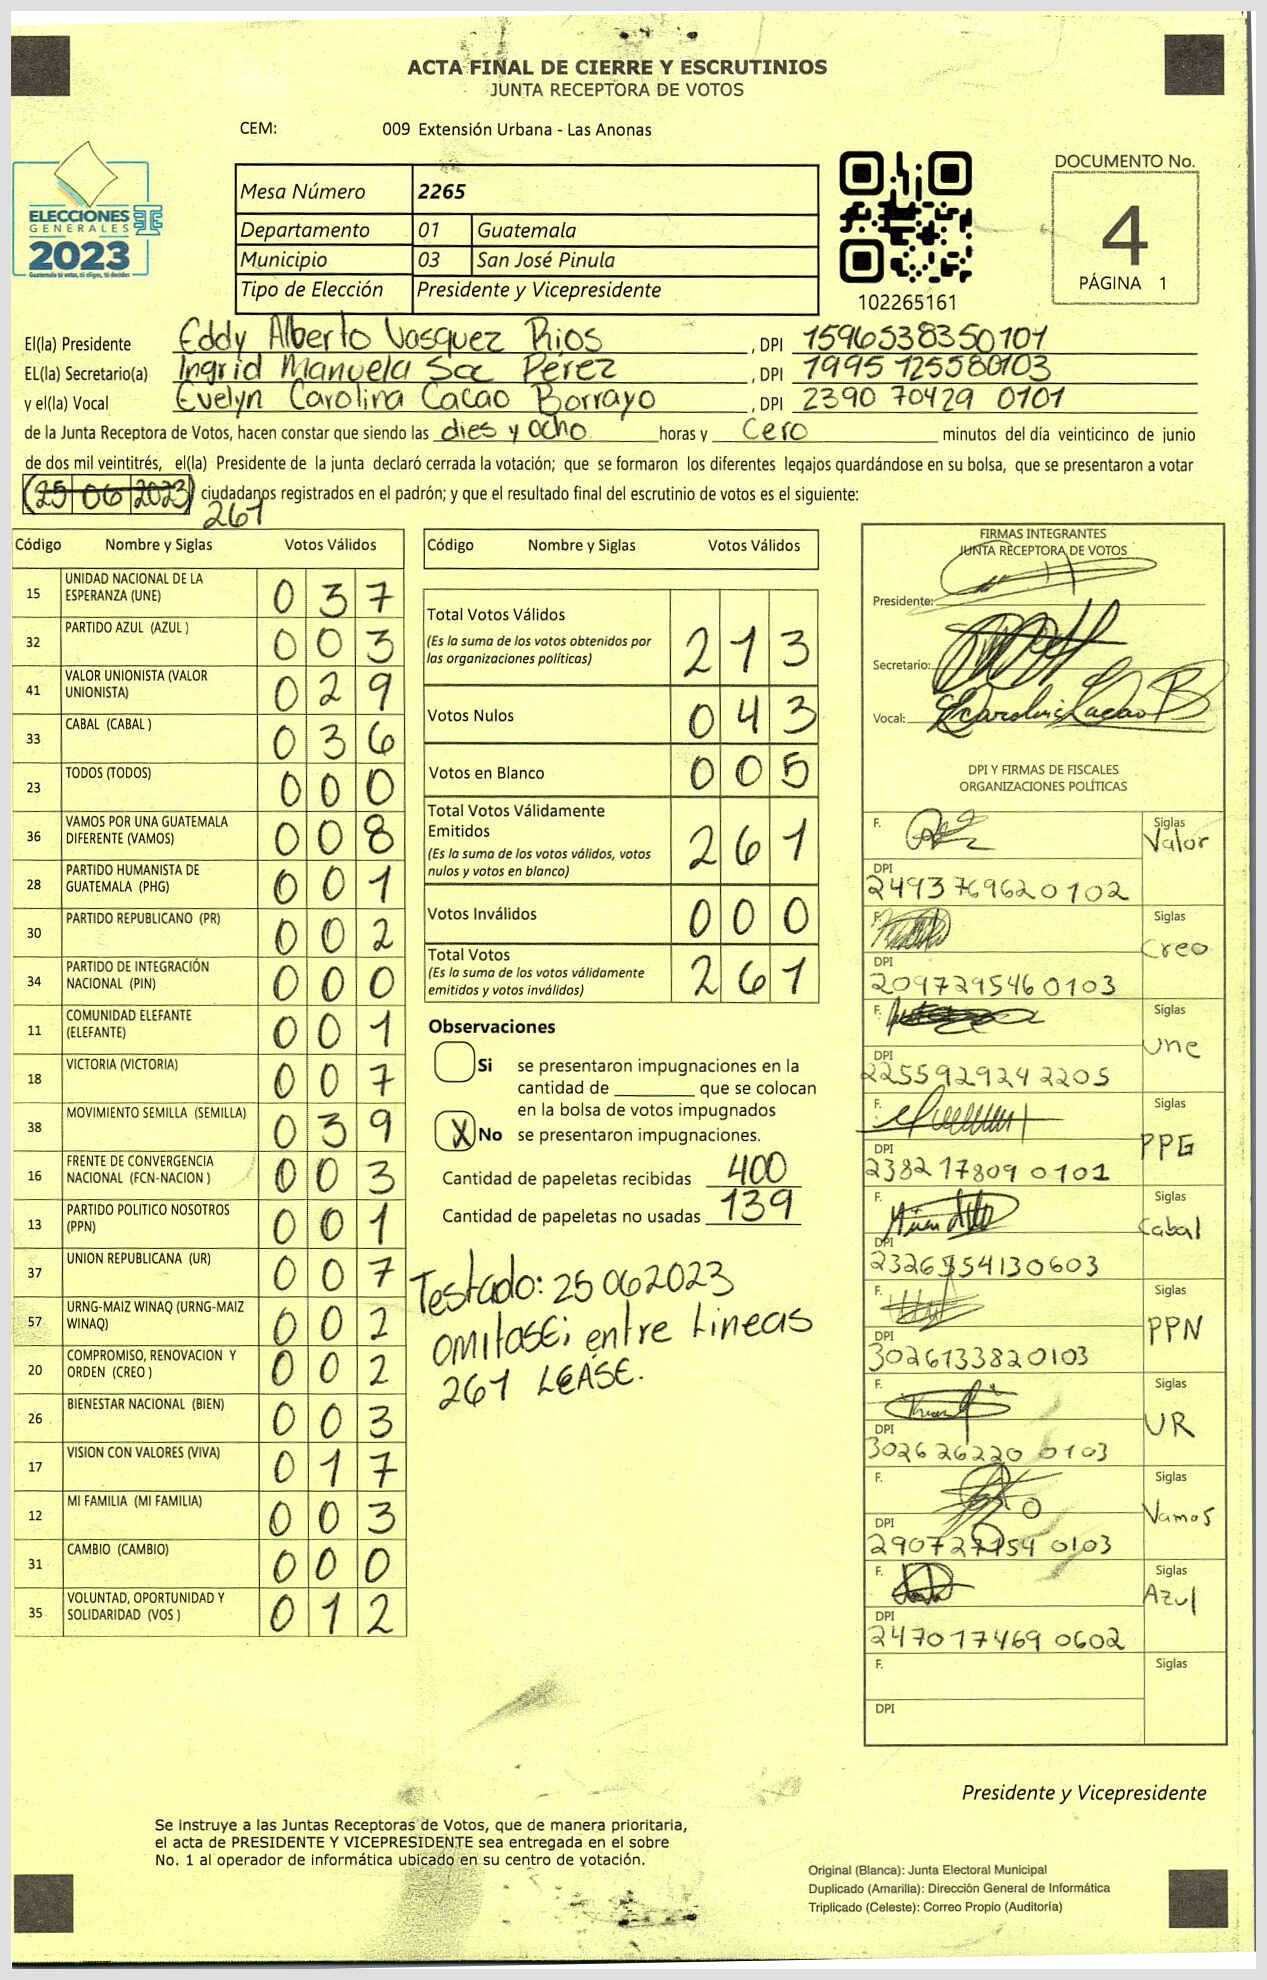 ACTA FINAL DE CIERRE Y ESCRUTINIOS
JUNTA RECEPTORA DE VOTOS
CEM: 009 Extensión Urbana - Las Anonas
ELECCIONES
GENERALES
2023
Guatemala tú votas, tú eliges, tú decides
Mesa Número 2265
Departamento 01 Guatemala
Municipio 03 San José Pinula
Tipo de Elección Presidente y Vicepresidente
102265161
DOCUMENTO No.
4
PÁGINA 1
El(la) Presidente Eddy Alberto Vasquez Rios , DPI 1596538350101
EL(la) Secretario(a) Ingrid Manuela Soc Pérez , DPI 1995 125580103
y el(la) Vocal Evelyn Carolina Cacao Borrayo , DPI 2390 70429 0101
de la Junta Receptora de Votos, hacen constar que siendo las dies y ocho horas y Cero minutos del día veinticinco de junio
de dos mil veintitrés, el(la) Presidente de la junta declaró cerrada la votación; que se formaron los diferentes legajos guardándose en su bolsa, que se presentaron a votar
(25 06 2023) ciudadanos registrados en el padrón; y que el resultado final del escrutinio de votos es el siguiente:
261
Código Nombre y Siglas Votos Válidos
15 UNIDAD NACIONAL DE LA ESPERANZA (UNE) 0 3 7
32 PARTIDO AZUL (AZUL ) 0 0 3
41 VALOR UNIONISTA (VALOR UNIONISTA) 0 2 9
33 CABAL (CABAL ) 0 3 6
23 TODOS (TODOS) 0 0 0
36 VAMOS POR UNA GUATEMALA DIFERENTE (VAMOS) 0 0 8
28 PARTIDO HUMANISTA DE GUATEMALA (PHG) 0 0 1
30 PARTIDO REPUBLICANO (PR) 0 0 2
34 PARTIDO DE INTEGRACIÓN NACIONAL (PIN) 0 0 0
11 COMUNIDAD ELEFANTE (ELEFANTE) 0 0 1
18 VICTORIA (VICTORIA) 0 0 7
38 MOVIMIENTO SEMILLA (SEMILLA) 0 3 9
16 FRENTE DE CONVERGENCIA NACIONAL (FCN-NACION ) 0 0 3
13 PARTIDO POLITICO NOSOTROS (PPN) 0 0 1
37 UNION REPUBLICANA (UR) 0 0 7
57 URNG-MAIZ WINAQ (URNG-MAIZ WINAQ) 0 0 2
20 COMPROMISO, RENOVACION Y ORDEN (CREO ) 0 0 2
26 BIENESTAR NACIONAL (BIEN) 0 0 3
17 VISION CON VALORES (VIVA) 0 1 7
12 MI FAMILIA (MI FAMILIA) 0 0 3
31 CAMBIO (CAMBIO) 0 0 0
35 VOLUNTAD, OPORTUNIDAD Y SOLIDARIDAD (VOS ) 0 1 2
Código Nombre y Siglas Votos Válidos
Total Votos Válidos 2 1 3
(Es la suma de los votos obtenidos por
las organizaciones políticas)
Votos Nulos 0 4 3
Votos en Blanco 0 0 5
Total Votos Válidamente
Emitidos 2 6 1
(Es la suma de los votos válidos, votos
nulos y votos en blanco)
Votos Inválidos 0 0 0
Total Votos 2 6 1
(Es la suma de los votos válidamente
emitidos y votos inválidos)
Observaciones
Si se presentaron impugnaciones en la
cantidad de que se colocan
en la bolsa de votos impugnados
X No se presentaron impugnaciones.
Cantidad de papeletas recibidas 400
Cantidad de papeletas no usadas 139
Testado: 25 06 2023
OMITASE; entre Lineas
261 LEASE.
FIRMAS INTEGRANTES
JUNTA RECEPTORA DE VOTOS
Presidente:
Secretario:
Vocal:
DPI Y FIRMAS DE FISCALES
ORGANIZACIONES POLÍTICAS
F. Siglas Valor
DPI 249376962 0102
F. Siglas Creo
DPI 209729546 0103
F. Siglas Une
DPI 225592924 2205
F. Siglas PPG
DPI 2382 17809 0101
F. Siglas Cabal
DPI
F. Siglas PPN
DPI 302613382 0103
F. Siglas UR
DPI 3026 26220 0103
F. Siglas Vamos
DPI
F. Siglas Azul
DPI 247017469 0602
F. Siglas
DPI
Presidente y Vicepresidente
Se instruye a las Juntas Receptoras de Votos, que de manera prioritaria,
el acta de PRESIDENTE Y VICEPRESIDENTE sea entregada en el sobre
No. 1 al operador de informática ubicado en su centro de votación.
Original (Blanca): Junta Electoral Municipal
Duplicado (Amarilla): Dirección General de Informática
Triplicado (Celeste): Correo Propio (Auditoría)